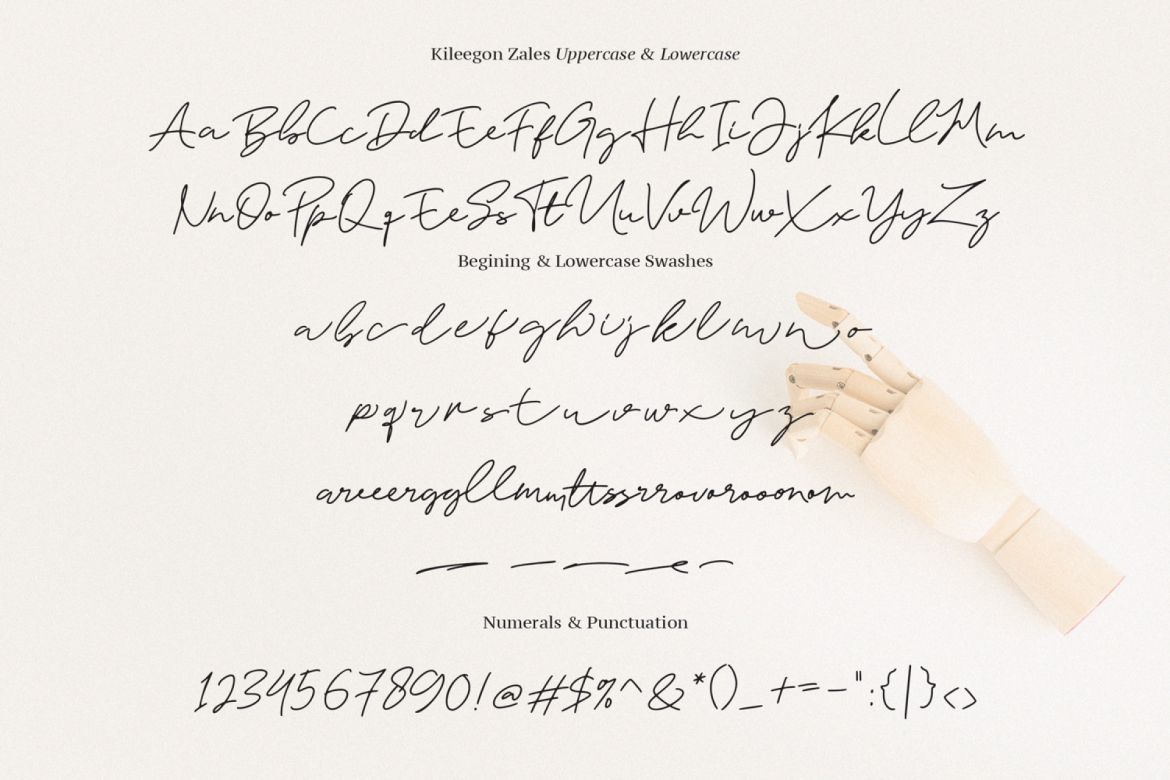 Kileegon Zales Uppercase & Lowercase
Aa Bb Cc Dd Ee Ff Gg Hh Ii Jj Kk Ll Mm
Nn Oo Pp Qq Ee Ss Tt Uu Vv Ww Xx Yy Zz
Begining & Lowercase Swashes
a b c d e f g h i j k l m n o
p q r r s t u v w x y z
areeerggllmmttssrrovorooonom
Numerals & Punctuation
1234567890!@#$%^&*()_+=-":{|}<>